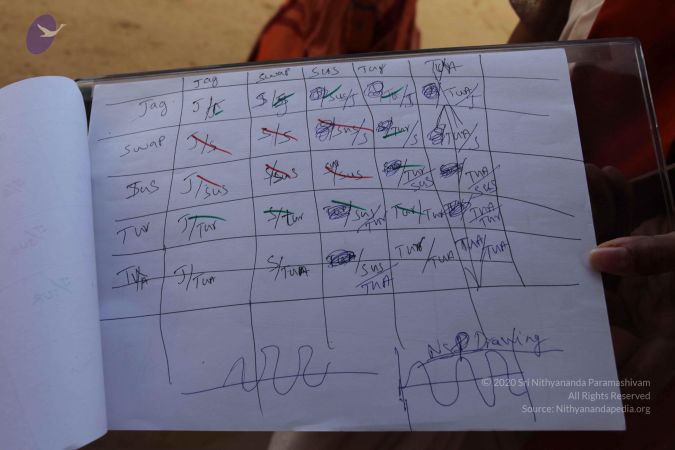 Jag Swap Sus Tur TuA
Jag J/J S/J Sus/J Tur/J TuA/J
Swap J/S S/S Sus/S Tur/S TuA/S
Sus J/Sus S/Sus Sus/Sus Tur/Sus TuA/Sus
Tur J/Tur S/Tur Sus/Tur Tur/Tur TuA/Tur
TuA J/TuA S/TuA Sus/TuA Tur/TuA TuA/TuA
Drawing
© 2020 Sri Nithyananda Paramashivam
All Rights Reserved
Source: Nithyanandapedia.org